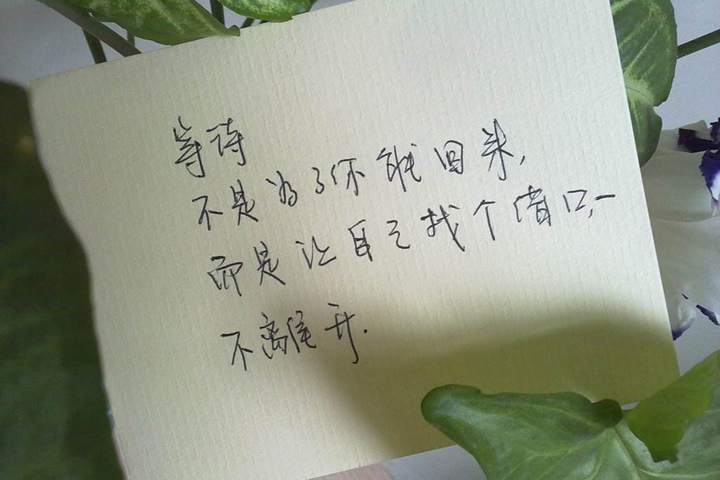 等待
不是为了你能回来,
而是让自己找个借口,一
不离开.